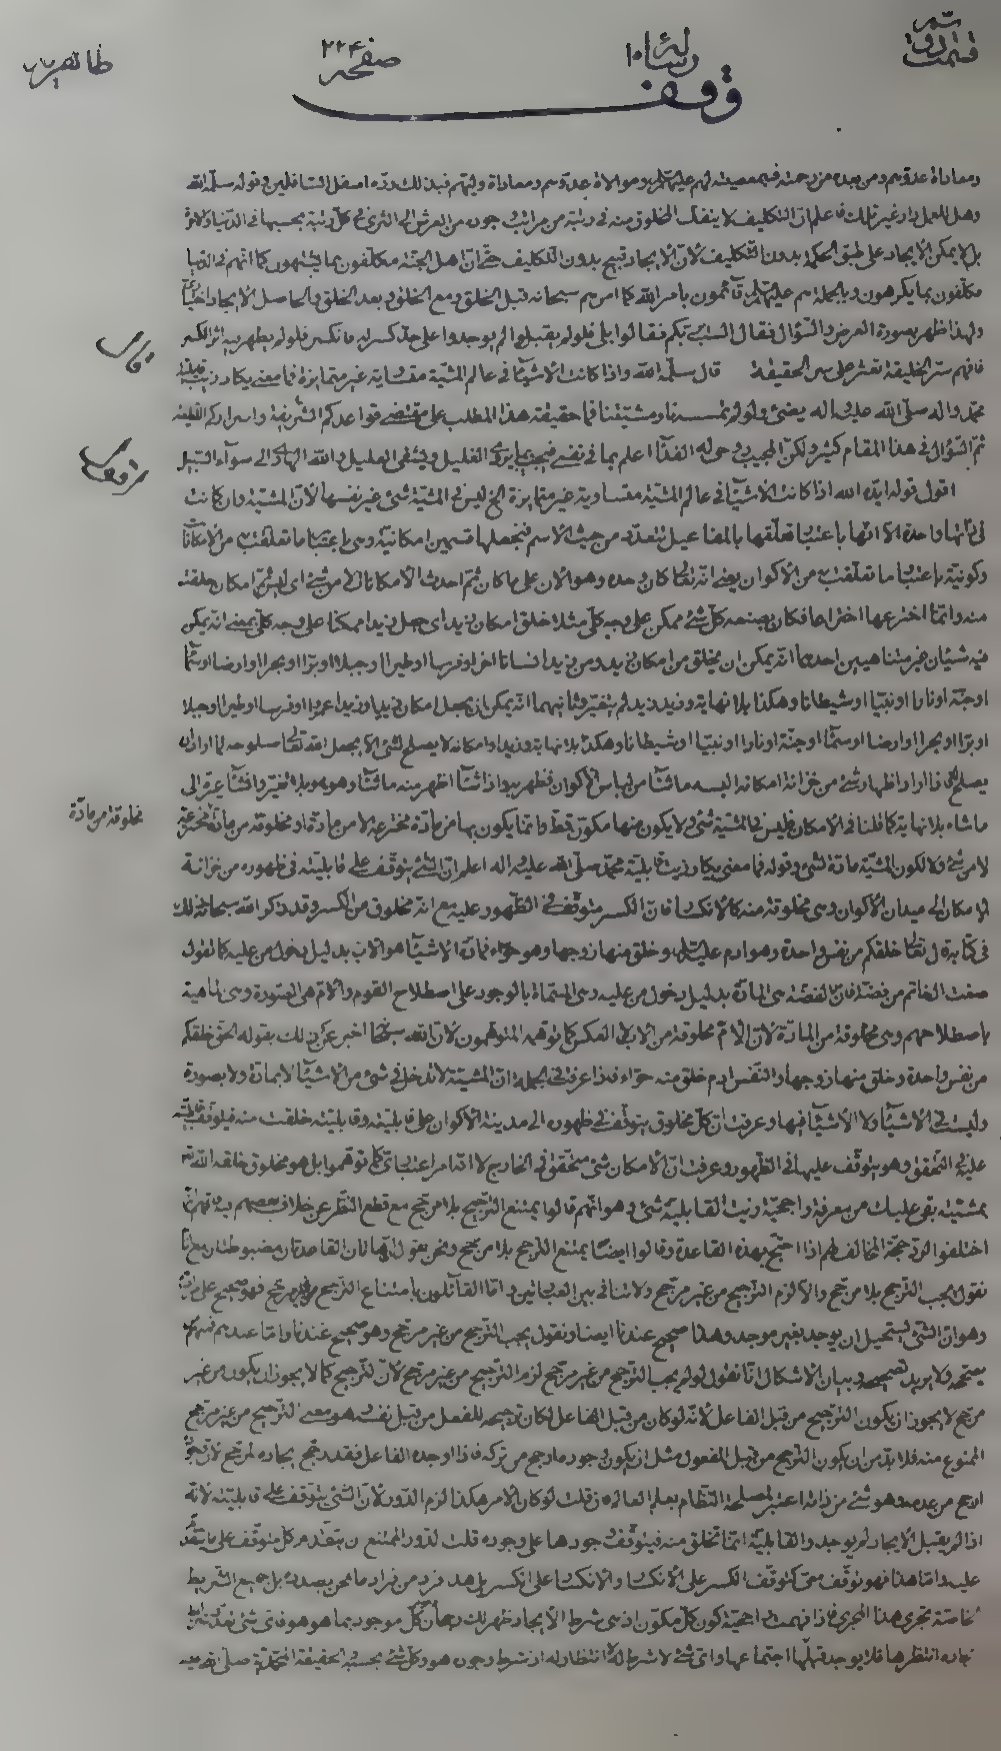 رسالة ١٠
صفحه ٢٢٤
وقف
ومعاداة عدوهم ومن بعده من رحمته فبمعصيته لهم عليهم السلام وموالاة عدوهم ومعاداة وليهم فبذلك رده اسفل السافلين وقوله سلمه الله
وهل للعمل دار غير تلك فاعلم ان التكليف لا ينفك الخلق منه في رتبة من مراتب وجوده من العرش الى الثرى في كل رتبة بحسبها في الدنيا والاخرة
بل لا يمكن الايجاد على طبق الحكمة بدون التكليف لان الايجاد قبيح بدون التكليف حتى ان اهل الجنة مكلفون بما يشتهون كما انهم في الدنيا
مكلفون بما يكرهون وبالجملة هم عليهم السلام قائمون بامر الله كما امرهم سبحانه قبل الخلق ومع الخلق وبعد الخلق والحاصل الايجاد
ولهذا ظهر بصورة العرض والسؤال فقال الست بربكم فقالوا بلى فلو لم يقبلوا لم يوجدوا على حد كسرته فانكسر فلو لم يظهر به اثر الكسر
فافهم ستر الخليقة تعثر على سر الحقيقة قال سلمه الله واذا كانت الاشياء في عالم المشية متساوية غير متمايزة فما معنى يكاد زيت قابلية
محمد واله صلى الله عليه واله يضئ ولو لم تمسسه نار مشيتنا فما حقيقة هذا المطلب على مقتضى قواعدكم الشريفة واسراركم
ثم السؤال في هذا المقام كثير ولكن المجيب روحي له الفداء اعلم بما في نفسي فيجيب بما يبرد الغليل ويشفى العليل والله الهادي الى سوآء السبيل
اقول قوله ايده الله اذا كانت الاشياء في عالم المشية متساوية غير متمايزة الخ ليس في المشية شئ غير نفسها لان المشية وان كانت
في ذاتها واحدة الا انها باعتبار تعلقها بالمفاعيل تتعدد من حيث الاسم فنجعلها قسمين امكانية وهي باعتبار ما تعلقت به من الامكانات
وكونية باعتبار ما تعلقت به من الاكوان يعني انه تعالى كان وحده وهو الان على ما كان ثم احدث الامكانات لا من شئ اي ليس ثم امكان خلقت
منه وانما اخترعها اختراعا فكان بصنعه كل شئ ممكن على وجه كلي مثلا خلق امكان زيد اي جعل زيدا ممكنا على وجه كلي بمعنى انه يمكن
فيه شيئان غير متناهيين احدهما انه يمكن ان يخلق من امكان زيد ومن زيد انسانا اخر او فرسا او طيرا او جبلا او برا او بحرا او ارضا او سماء
او جنة او نارا او نبيا او شيطانا وهكذا بلا نهاية وزيد زيد لم يتغير وثانيهما انه يمكن ان يجعل امكان زيد وزيدا عمروا او فرسا او طيرا او جبلا
او برا او بحرا او ارضا او سماء او جنة او نارا او نبيا او شيطانا وهكذا بلا نهاية وزيد او امكانه لا يصلح لشئ الا بجعل الله تعالى صلوحه لما اراد ان
يصلح له فاذا اراد اظهار شئ من خزانة امكانه البسه ما شاء من لباس الاكوان فظهر به واذا شاء اظهر منه ما شاء وهو هو بلا تغير واذا شاء غيره الى
ما شاء بلا نهاية كما قلنا في الامكان فليس في المشية شئ ولا يكون منها مكون قط وانما يكون بها من مادة مخترعة لا من مادة او مخلوقة من مادة مخترعة
لا من شئ ولا تكون المشية مادة لشئ وقوله فما معنى يكاد زيت قابلية محمد صلى الله عليه واله اعلم ان الشئ يتوقف على قابليته في ظهوره من خزانة
الامكان الى ميدان الاكوان وهي مخلوقة منه كالانكسار فان الكسر متوقف في الظهور عليه مع انه مخلوق من الكسر وقد ذكر الله سبحانه ذلك
في كتابه قال تعالى خلقكم من نفس واحدة وهو ادم عليه السلام وخلق منها زوجها وهو حواء فمادة الاشياء هو الاب بدليل دخول من عليه كما تقول
صغت الخاتم من فضة فان الفضة هي المادة بدليل دخول من عليه وهي المسماة بالوجود على اصطلاح القوم والام هي الصورة وهي الماهية
باصطلاحهم وهي مخلوقة من المادة لان الام مخلوقة من الاب لا العكس كما توهمه المتوهمون لان الله سبحانه اخبر عن ذلك بقوله الحق خلقكم
من نفس واحدة وخلق منها زوجها والنفس ادم خلق منه حواء فاذا عرفت الجملة ان المشية لا تدخل في شئ من الاشياء لا بمادة ولا بصورة
وليست في الاشياء ولا الاشياء فيها وعرفت ان كل مخلوق يتوقف في ظهوره الى مدينة الاكوان على قابليته وقابليته خلقت منه فيتوقف قابليته
عليه في التحقق وهو يتوقف عليها في الظهور وعرفت ان الامكان شئ متحقق في الخارج لا انه امر اعتباري كما توهموا بل هو مخلوق خلقه الله تعالى
بمشيته بقى عليك من معرفة راجحية زيت القابلية شئ وهو انهم قالوا يمتنع الترجيح بلا مرجح مع قطع النظر عن خلاف بعضهم
اختلفوا لرد حجة المخالف لهم اذا احتج بهذه القاعدة وقالوا ايضا يمتنع الترجح بلا مرجح ونحن نقول هاتان القاعدتان مضبوطتان مع انا
نقول يجب الترجيح بلا مرجح والا لزم الترجيح من غير مرجح ولا تنافي بين العبارتين واما القائلون بامتناع الترجيح من غير مرجح فهو صحيح على
وهو ان الشئ يستحيل ان يوجد بغير موجد وهذا صحيح عندنا ايضا ونقول يجب الترجيح من غير مرجح وهو صحيح عندنا واما عندهم فمنهم
يصححه ولا يريد تصحيحه وبيان الاشكال انا نقول لو لم يجب الترجيح من غير مرجح لزم الترجيح من غير مرجح لان الترجيح كما لا يجوز ان يكون من غير
مرجح لا يجوز ان يكون الترجيح من قبل الفاعل لانه لو كان من قبل الفاعل لكان ترجيحه للفعل من قبل نفسه وهو معنى الترجيح من غير مرجح
الممنوع منه فلا بد من ان يكون الترجح من قبل المفعول مثل ان يكون وجوده ارجح من تركه فاذا اوجده الفاعل فقد رجح ايجاده لمرجح
ارجح من عدمه وهو شئ من ذاته اعتبر لمصلحة النظام بعلم العالم فان قلت لو كان الامر هكذا لزم الدور لان الشئ يتوقف على قابليته لانه
اذا لم يقبل الايجاد لم يوجد والقابلية انما تخلق منه فيتوقف وجودها على وجوده قلت الدور الممتنع ان يتقدم كل متوقف على ما يتقدم
عليه واما هذا فهو توقف معي كتوقف الكسر على الانكسار والانكسار على الكسر بل هذا فرد من افراد ما نحن بصدده بل جميع الشرائط
خاصة تجري هذا المجرى فاذا فهمت راجحية كون كل مكون اذ هي شرط الايجاد ظهر لك رجحان كل موجود بما هو هو فاي شئ
ايجاده انتظرها فلا يوجد قبلها اجتماعها واي شئ لا شرط له لا انتظار له اذ شرط وجوده هو وكل شئ بحسبه الحقيقة المحمدية صلى الله عليه
مخلوقة من مادة